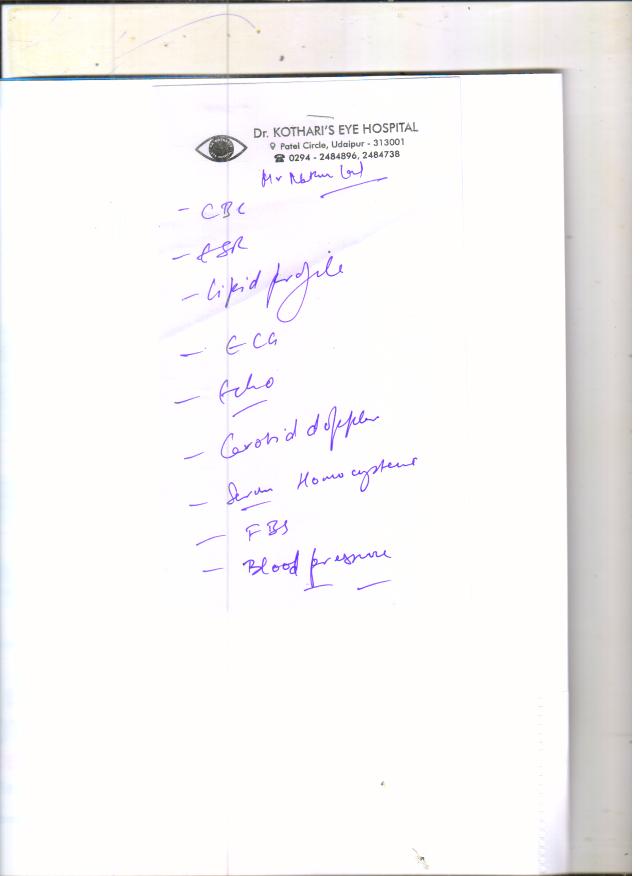 Dr. KOTHARI'S EYE HOSPITAL
Patel Circle, Udaipur - 313001
0294 - 2484896, 2484738
Mr Nathu Lal
- CBC
- ESR
- Lipid profile
- ECG
- Echo
- Carotid doppler
- Serum Homocysteine
- FBS
- Blood pressure